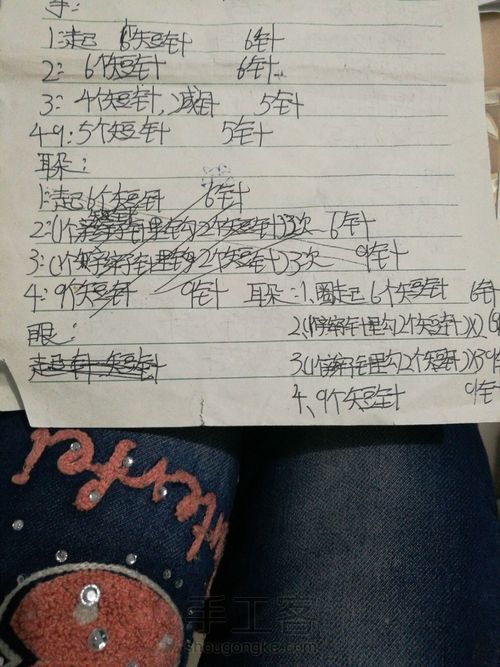 手:
1:起 6个短针 6针
2: 6个短针 6针
3: 4个短针,减针 5针
4-9:5个短针 5针
耳朵:
1:起6个短针 6针
2:(1个 针里钩2个短针)3次 6针
3:(1个 针里钩2个短针)3次 9针
4:9个短针 9针
眼:
起 针 短针
耳朵:1、圈起6个短针 6针
2、(1个 针里钩2个短针)
3(1个 针里钩2个短针)X3 9
4、9个短针 9针
terfel
手工客
shougongke.com